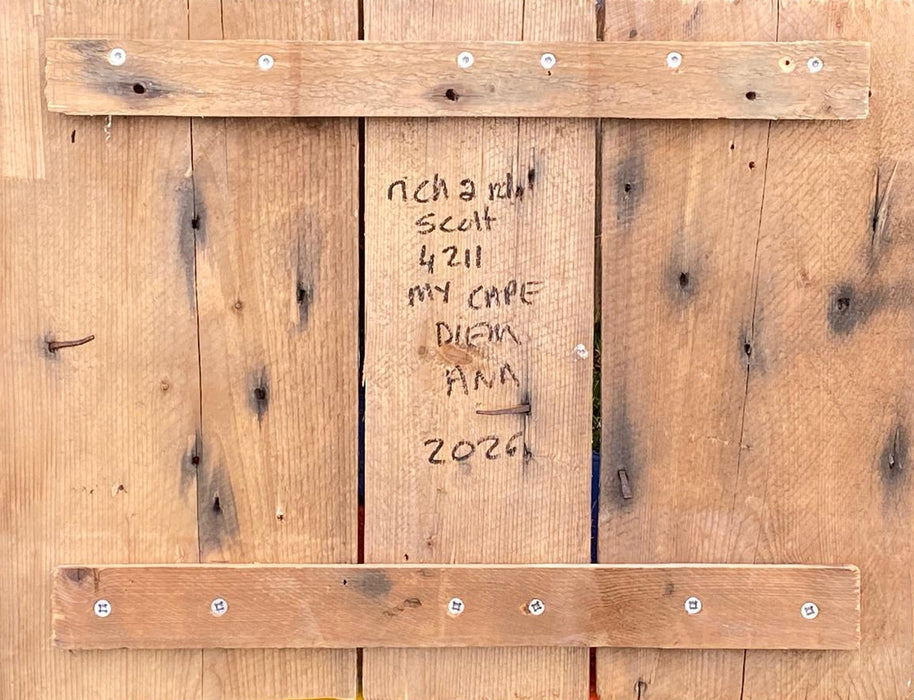 richard
scott
4211
MY CAPE
DIEM
ANA
2026